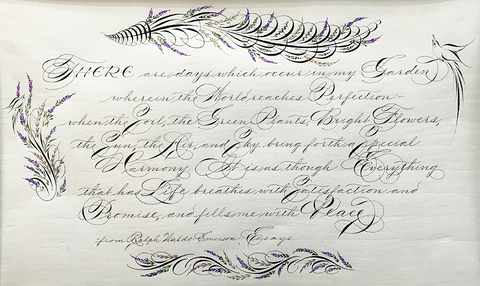 THERE are days which occur in my Garden
wherein the World reaches Perfection-
when the Soil, the Green Plants, Bright Flowers,
the Sun, the Air, and Sky bring forth a Special
Harmony. It is as though Everything
that has Life breathes with Satisfaction and
Promise, and fills me with Peace.
from Ralph Waldo Emerson, Essays